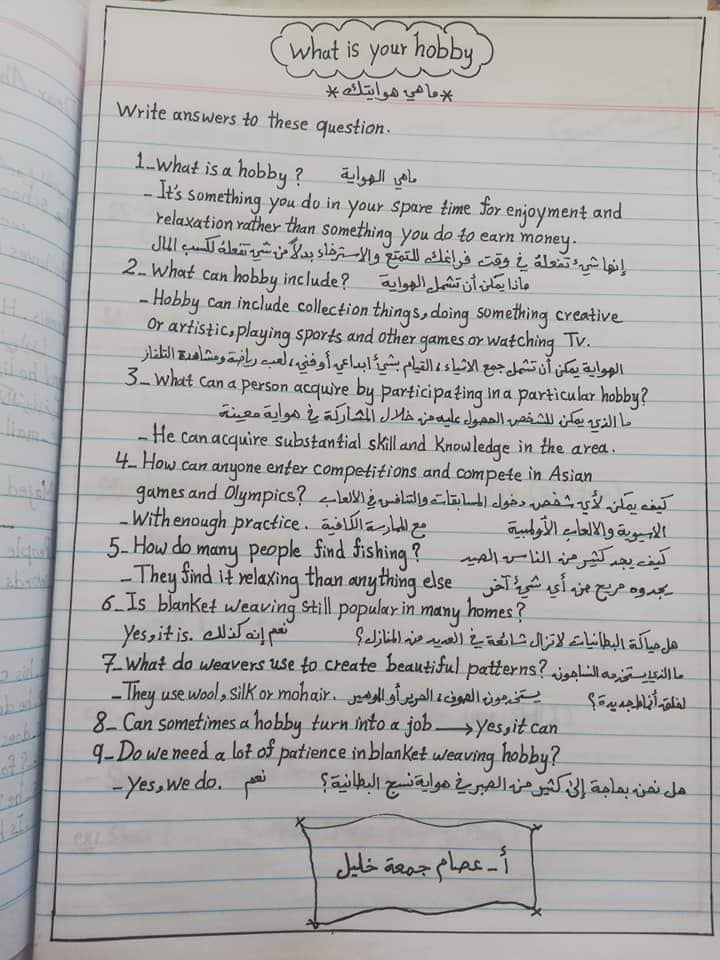 What is your hobby
*ماهي هوايتك*
Write answers to these question.
1_What is a hobby? ماهي الهواية
_ It's something you do in your spare time for enjoyment and
relaxation rather than something you do to earn money.
إنها شيء تفعلة في وقت فراغك للتمتع والاسترخاء بدلاً من شيء تفعلة لكسب المال
2_ What can hobby include? ماذا يمكن أن تشمل الهواية
_ Hobby can include collection things, doing something creative
or artistic, playing sports and other games or watching Tv.
الهواية يمكن أن تشمل جمع الاشياء، القيام بشيء ابداعي أو فني، لعب رياضة ومشاهدة التلفاز
3_ What can a person acquire by participating in a particular hobby?
ما الذي يمكن للشخص الحصول عليه من خلال المشاركة في هواية معينة
_ He can acquire substantial skill and knowledge in the area.
4_ How can anyone enter competitions and compete in Asian
games and Olympics? كيف يمكن لأي شخص دخول المسابقات والتنافس في الالعاب
_ With enough practice. مع الممارسة الكافية الاسيوية والالعاب الأولمبية
5_ How do many people find fishing? كيف يجد كثير من الناس الصيد
_ They find it relaxing than anything else يجدوه مريح من أي شيء آخر
6_ Is blanket weaving still popular in many homes?
Yes, it is. نعم إنه كذلك هل حياكة البطانيات لاتزال شائعة في العديد من المنازل؟
7_ What do weavers use to create beautiful patterns? ما الذي يستخدمه النساجون
_ They use wool, silk or mohair. يستخدمون الصوف، الحرير أو الموهير لخلق أنماط جديدة؟
8_ Can sometimes a hobby turn into a job → yes, it can
9_ Do we need a lot of patience in blanket weaving hobby?
_ yes, we do. نعم هل نحن بحاجة إلى كثير من الصبر في هواية نسج البطانية؟
أ_ عصام جمعة خليل